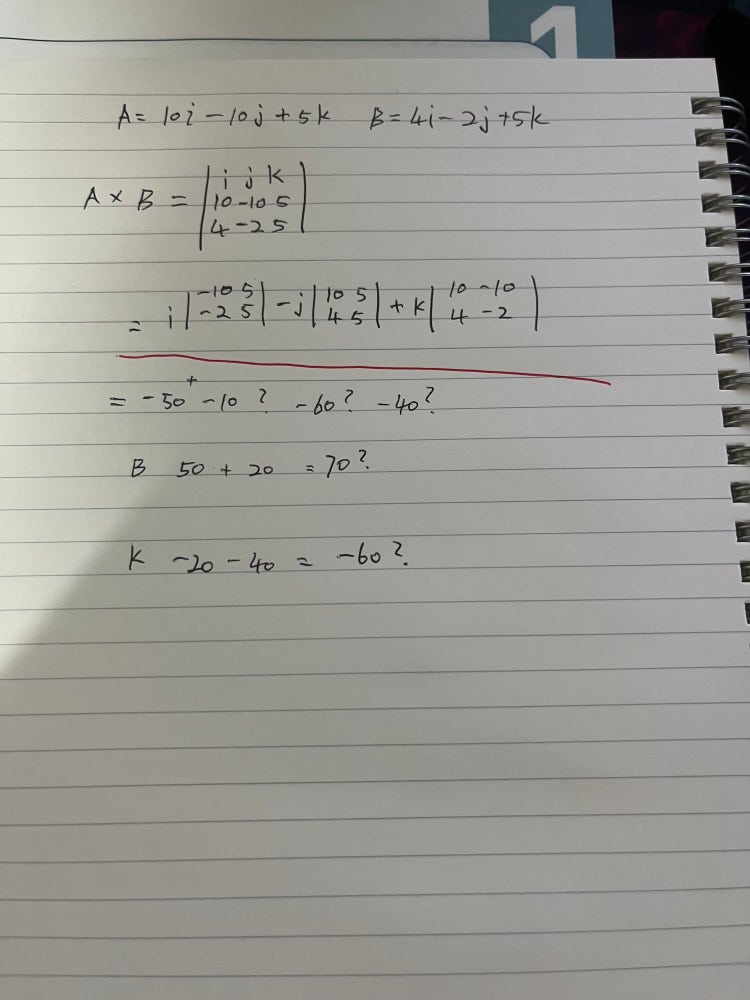 1
A = 10i - 10j + 5k B = 4i - 2j + 5k
A × B = | i j k |
| 10 -10 5 |
| 4 -2 5 |
= i | -10 5 | - j | 10 5 | + k | 10 -10 |
| -2 5 | | 4 5 | | 4 -2 |
+
= -50 -10 ? -60? -40?
B 50 + 20 = 70?
K -20 - 40 = -60?